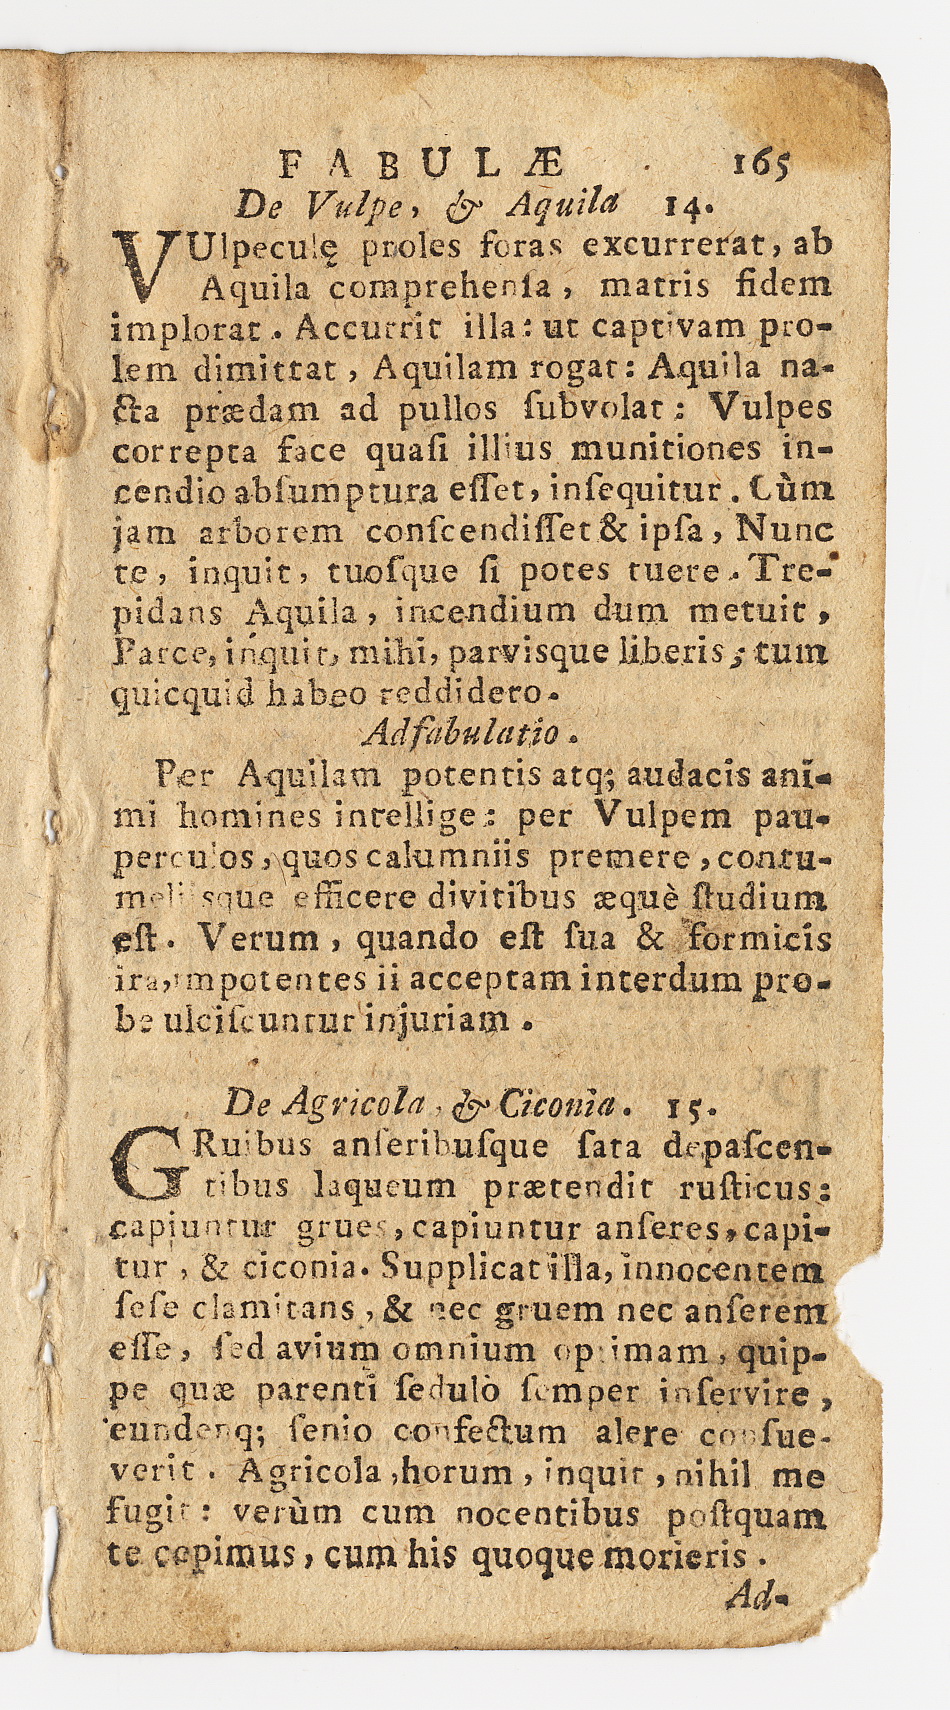 FABULÆ 165
De Vulpe, & Aquila 14.
VUlpeculę proles foras excurrerat, ab
Aquila comprehenſa, matris fidem
implorat. Accurrit illa: ut captivam pro-
lem dimittat, Aquilam rogat: Aquila na-
cta prædam ad pullos ſubvolat: Vulpes
correpta face quaſi illius munitiones in-
cendio abſumptura eſſet, inſequitur. Cùm
jam arborem conſcendiſſet & ipſa, Nunc
te, inquit, tuoſque ſi potes tuere. Tre-
pidans Aquila, incendium dum metuit,
Parce, inquit, mihi, parvisque liberis; tum
quicquid habeo reddidero.
Adfabulatio.
Per Aquilam potentis atq; audacis ani-
mi homines intellige: per Vulpem pau-
perculos, quos calumniis premere, contu-
meliisque efficere divitibus æquè ſtudium
eſt. Verum, quando eſt ſua & formicis
ira, impotentes ii acceptam interdum pro-
be ulciſcuntur injuriam.
De Agricola, & Ciconia. 15.
GRuibus anſeribuſque ſata depaſcen-
tibus laqueum prætendit ruſticus:
capiuntur grues, capiuntur anſeres, capi-
tur, & ciconia. Supplicat illa, innocentem
ſeſe clamitans, & nec gruem nec anſerem
eſſe, ſed avium omnium optimam, quip-
pe quæ parenti ſedulò ſemper inſervire,
eundenq; ſenio confectum alere conſue-
verit. Agricola, horum, inquit, nihil me
fugit: verùm cum nocentibus poſtquam
te cepimus, cum his quoque morieris.
Ad-